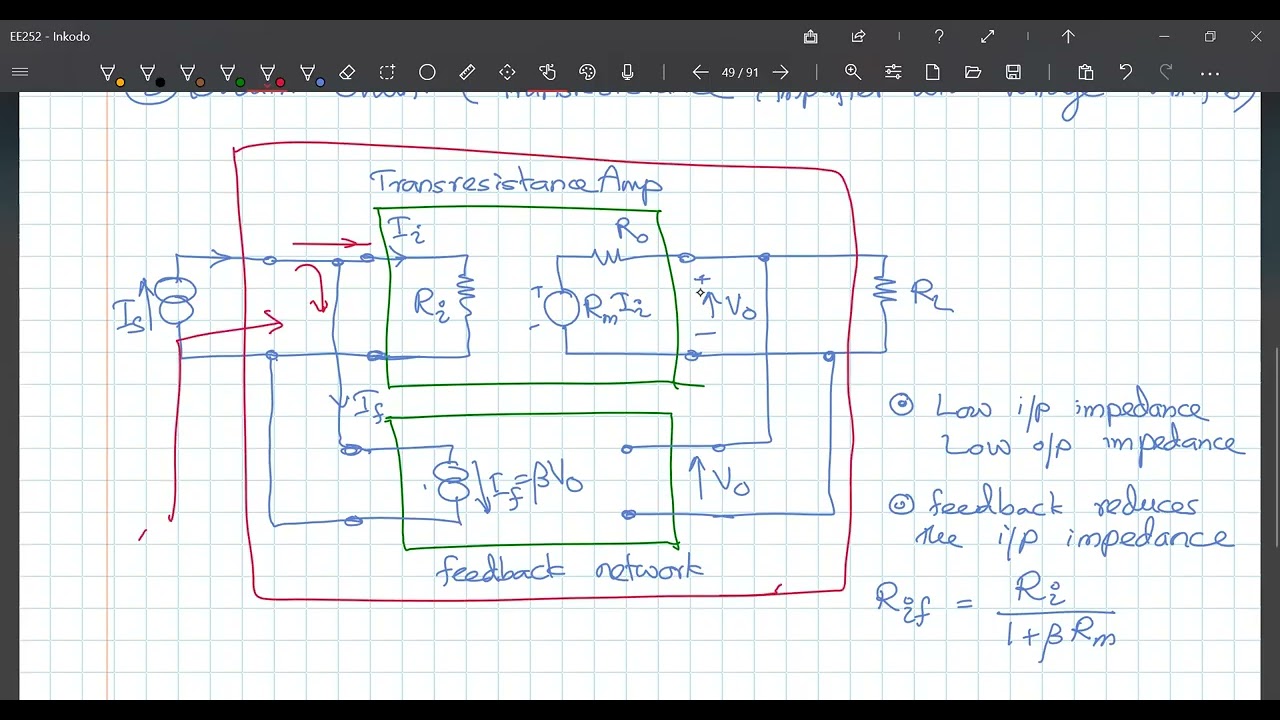 EE252 - Inkodo
49 / 91
Transresistance Amp
Ii
Ro
Is
Ri
RmIi
+
-
+
Vo
−
RL
If
If=βVo
Vo
feedback network
⊙ Low i/p impedance
Low o/p impedance
⊙ feedback reduces
the i/p impedance
Rif = Ri
1+βRm